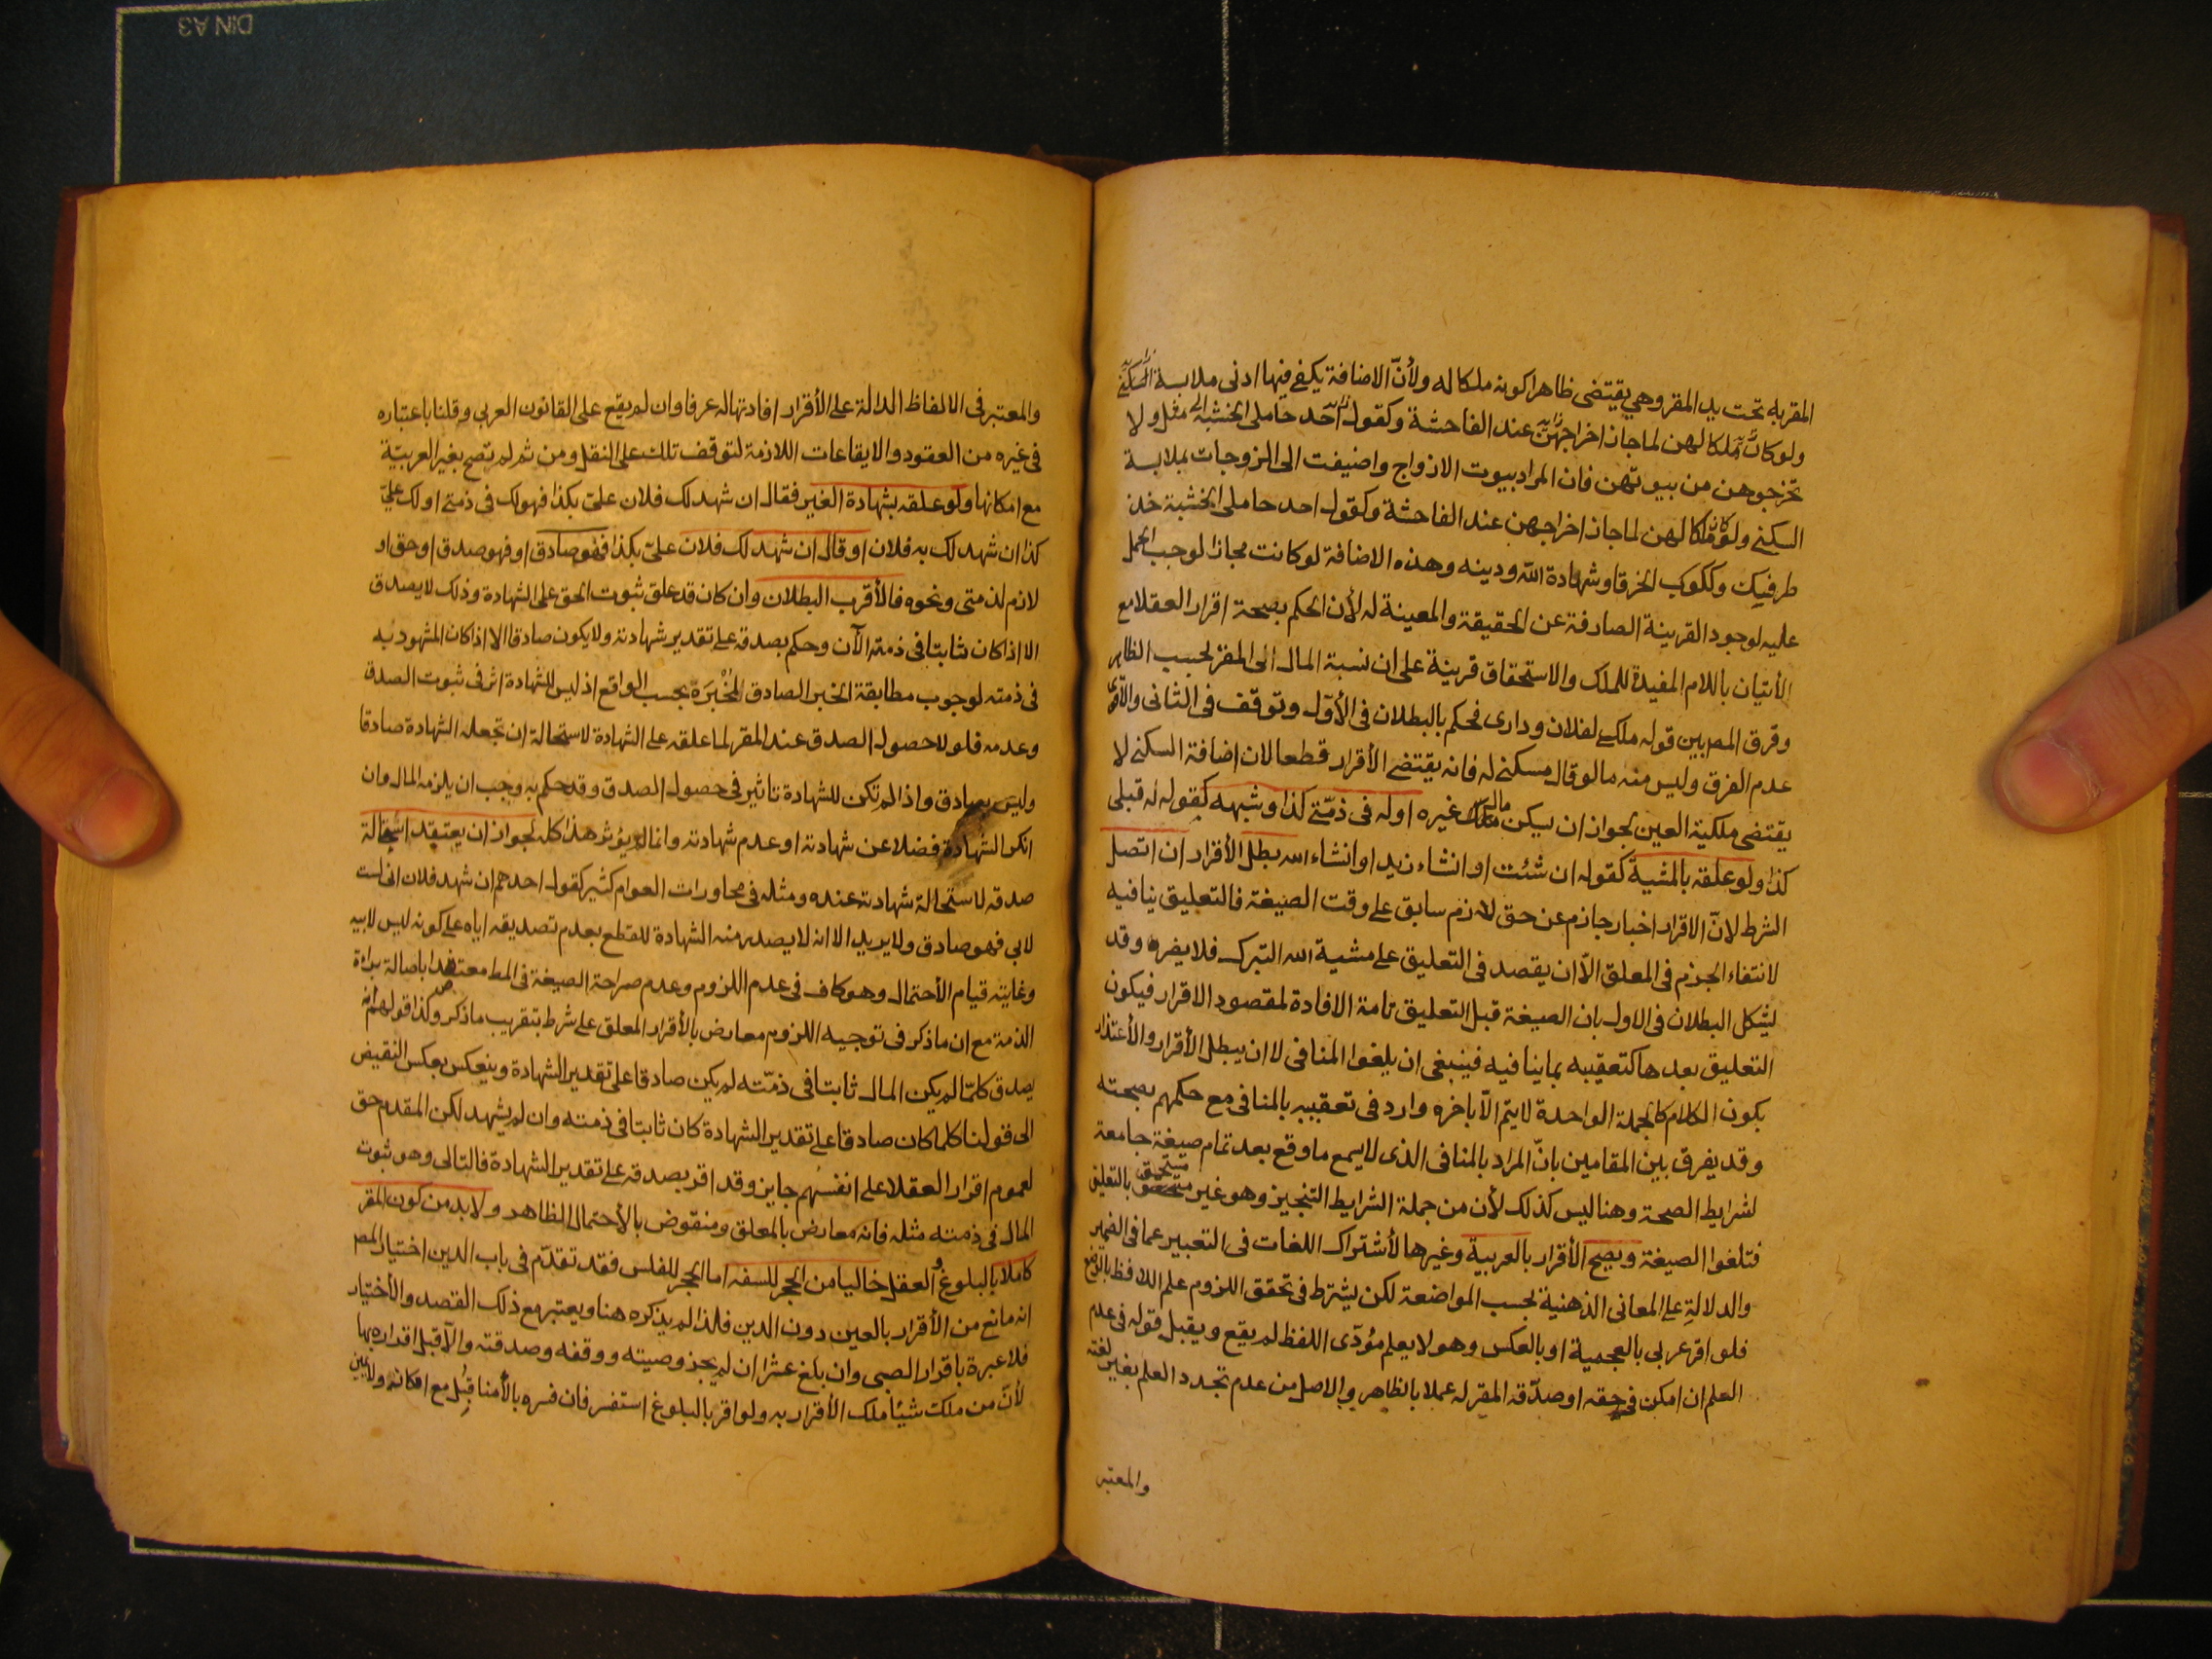 المقر به تحت يد المقر وهي يقتضي ظاهرا كونه ملكا له ولأنّ الاضافة يكفي فيها ادنى ملابسة
ولو كان ملكا لهن لما جاز اخراجهن عند الفاحشة وكقول احد حاملى الخشبة مثل ولا
تخرجوهن من بيوتهن فان المراد بيوت الازواج واضيفت الى الزوجات بملابسة
السكنى ولو كان ملكا لهن لما جاز اخراجهن عند الفاحشة وكقول احد حاملى الخشبة خذ
طرفيك وككوكب الخرقا وشهادة الله ودينه وهذه الاضافة لو كانت مجازا لوجب الحمل
عليه لوجود القرينة الصارفة عن الحقيقة والمعينة له لأن الحكم بصحة اقرار العقلا مع
الأتيان باللام المفيدة للملك والاستحقاق قرينة على ان نسبة المال الى المقر بحسب الظاهر
وفرق المصر بين قوله ملكي لفلان ودارى فحكم بالبطلان فى الأول وتوقف فى الثانى والأقوى
عدم الفرق وليس منه ما لو قال مسكنى له فانه يقتضى الأقرار قطعا لان اضافة السكنى لا
يقتضى ملكية العين لجواز ان يسكن مال غيره اوله فى ذمّتى كذا وشبهه كقوله له قبلى
كذا ولو علقه بالمشية كقوله ان شئت او انشاء زيد او انشاء الله بطل الأقرار ان اتصل
الشرط لانّ الاقرار اخبار جازم عن حق لازم سابق على وقت الصيغة فالتعليق ينافيه
لانتفاء الجزم فى المعلق الّا ان يقصد فى التعليق على مشية الله التبرك فلا يضره وقد
يشكل البطلان فى الاول بان الصيغة قبل التعليق تامة الافادة لمقصود الاقرار فيكون
التعليق بعدها كتعقيبه بما ينافيه فينبغى ان يلغوا المنافى لا ان يبطل الأقرار والأعتذار
بكون الكلام كالجملة الواحدة لا يتم الّا باخره وارد فى تعقيبه بالمنافى مع حكمهم بصحته
وقد يفرق بين المقامين بانّ المراد بالمنافى الذى لا يسمع ما وقع بعد تمام صيغة جامعة
لشرايط الصحة وهنا ليس كذلك لأن من جملة الشرايط التنجيز وهو غير متحقق بالتعليق
فتلغوا الصيغة ويصح الأقرار بالعربية وغيرها لأشتراك اللغات فى التعبير عما فى الضمير
والدلالةِ على المعانى الذهنية بحسب المواضعة لكن يشترط فى تحقق اللزوم علم اللافظ بالوضع
فلو اقر عربى بالعجمية او بالعكس وهو لا يعلم مُؤدّى اللفظ لم يقع ويقبل قوله فى عدم
العلم ان امكن فى حقه او صدّقه المقر له عملا بالظاهر والاصل من عدم تجدد العلم بغير لغته
والمعتبر
والمعتبر فى الالفاظ الدالة على الأقرار افادتها له عرفا وان لم يقع على القانون العربى وقلنا باعتباره
فى غيره من العقود والايقاعات اللازمة لتوقف تلك على النقل ومن ثم لم تصح بغير العربيّة
مع امكانها ولو علقه بشهادة الغير فقال ان شهد لك فلان علىّ بكذا فهو لك فى ذمتى او لك علىّ
كذا ان شهد لك به فلان او قال ان شهد لك فلان علىّ بكذا فهو صادق او فهو صدق او حق او
لازم لذمتى ونحوه فالأقرب البطلان وان كان قد علق ثبوت الحق على الشهادة وذلك لا يصدق
الا اذا كان ثابتا فى ذمته الآن وحكم بصدقه على تقدير شهادته ولا يكون صادقا الا اذا كان المشهود به
فى ذمته لوجوب مطابقة الخبر الصادق لمُخْبَرَه بحسب الواقع اذ ليس للشهادة اثر فى ثبوت الصدق
وعدمه فلولا حصول الصدق عند المقر لما علقه على الشهادة لاستحالة ان تجعله الشهادة صادقا
وليس بصادق واذا لم تكن للشهادة تاثير فى حصول الصدق وقد حكم به وجب ان يلزمه المال وان
انكر الشهادة فضلا عن شهادته او عدم شهادته وانما لم يؤثر هذا كله لجواز ان يعتقد استحالة
صدقه لاستحالة شهادته عنده ومثله فى محاورات العوام كثير كقول احدهم ان شهد فلان انى لست
لابى فهو صادق ولا يريد الا انه لا يصدر منه الشهادة للقطع بعدم تصديقه اياه على كونه ليس لابيه
وغايته قيام الأحتمال وهو كاف فى عدم اللزوم وعدم صراحة الصيغة فى المط معتضدا باصالة براءة
الذمة مع ان ما ذكر فى توجيه اللزوم معارض بالأقرار المعلق على شرط بتقريب ما ذكر وكذا قولهم أنه
يصدق كلمّا لم يكن المال ثابتا فى ذمّته لم يكن صادقا على تقدير الشهادة وينعكس بعكس النقيض
الى قولنا كلما كان صادقا على تقدير الشهادة كان ثابتا فى ذمته وان لم يشهد لكن المقدم حق
لعموم اقرار العقلا على انفسهم جايز وقد اقر بصدقه على تقدير الشهادة فالتالى وهو ثبوت
المال فى ذمته مثله فانه معارض بالمعلق ومنقوض بالأحتمال الظاهر ولا بد من كون المقر
كاملا بالبلوغ و العقل خاليا من الحجر للسفه اما الحجر للفلس فقد تقدّم فى باب الدين اختيار المصر
انه مانع من الأقرار بالعين دون الدين فلذا لم يذكره هنا ويعتبر مع ذلك القصد والأختيار
فلا عبرة باقرار الصبى وان بلغ عشرا ان لم يجز وصيته ووقفه وصدقته والّا قبل اقراره بها
لأنّ من ملك شيئا ملك الأقرار به ولو اقر بالبلوغ استفسر فان فسره بالأمنا قُبِل مع امكانه ولا يمين
DIN A3